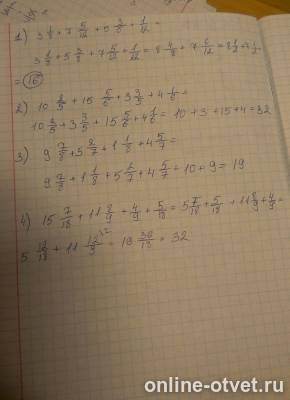 1) 3 1/8 + 7 5/12 + 5 3/8 + 1/12 =
3 1/8 + 5 3/8 + 7 5/12 + 1/12 = 8 4/8 + 7 6/12 = 8 1/2 + 7 1/2
= 16
2) 10 2/5 + 15 5/6 + 3 3/5 + 4 1/6 =
10 2/5 + 3 3/5 + 15 5/6 + 4 1/6 = 10 + 3 + 15 + 4 = 32
3) 9 7/8 + 5 2/7 + 1 1/8 + 4 5/7 =
9 7/8 + 1 1/8 + 5 2/7 + 4 5/7 = 10 + 9 = 19
4) 15 7/18 + 11 8/9 + 4/9 + 5/18 = 5 7/18 + 5/18 + 11 8/9 + 4/9 =
5 12/18 + 11 12/9 = 18 = 32
online-otvet.ru